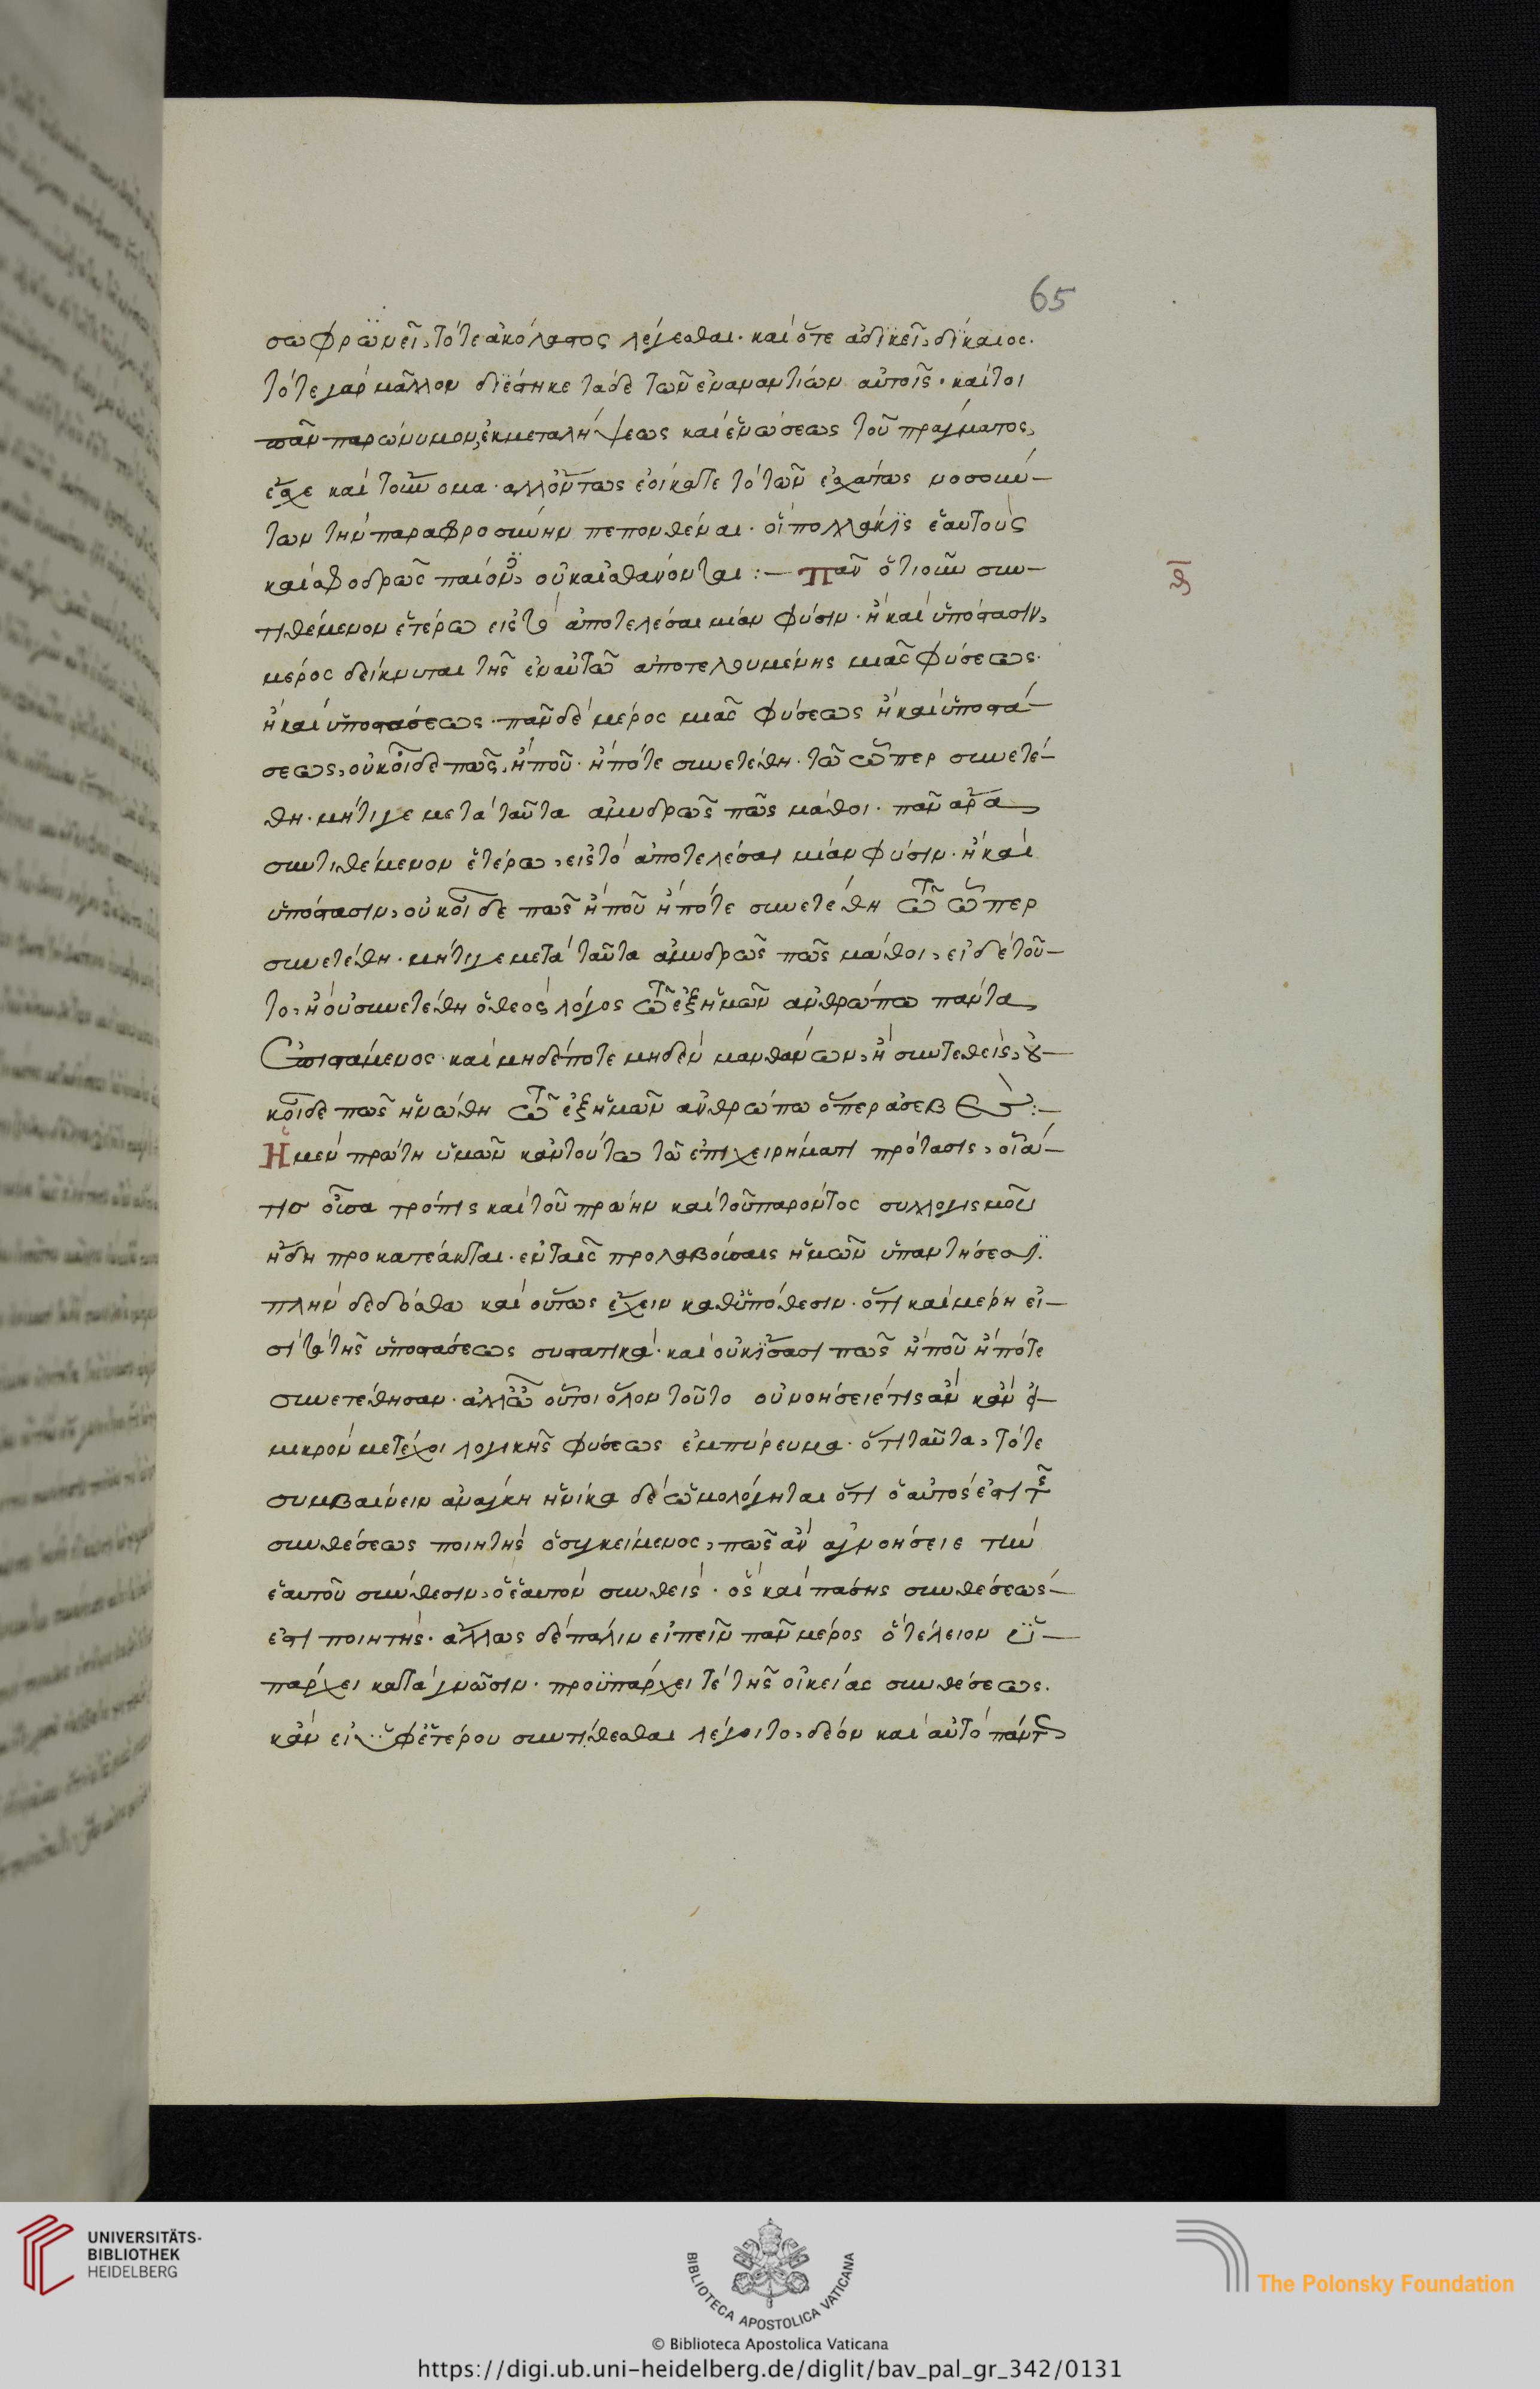 65
σωφρωνεῖ, τότε ἀκόλαστος λέγεσθαι· καὶ ὅτε ἀδικεῖ, δίκαιος.
τότε γὰρ μᾶλλον διέστηκε τάδε τῶν ἐναναντίων αὐτοῖς· καίτοι
πᾶν παρώνυμον, ἐκ μεταλήψεως καὶ ἑνώσεως τοῦ πράγματος,
ἔσχε καὶ τοὔνομα· ἀλλ' ὄντως ἐοίκατε τὸ τῶν ἐσχάτως νοσούν-
των τὴν παραφροσύνην πεπονθέναι· οἳ πολλάκις ἑαυτοὺς
καὶ σφοδρῶς παίοντες οὐκ αἰσθάνονται :— Πᾶν ὁτιοῦν συν-
τιθέμενον ἑτέρω εἰς τὸ ἀποτελέσαι μίαν φύσιν· ἢ καὶ ὑπόστασιν,
μέρος δείκνυται τῆς ἐν αὐτῶ ἀποτελουμένης μιᾶς φύσεως·
ἢ καὶ ὑποστάσεως· πᾶν δὲ μέρος μιᾶς φύσεως ἢ καὶ ὑποστά-
σεως, οὐκ οἶδε πῶς, ἢ ποῦ· ἢ πότε συνετέθη· τῶ ὧπερ συνετέ-
θη· μήτιγε μετὰ ταῦτα ἀμυδρῶς πῶς μάθοι· πᾶν ἄρα
συντιθέμενον ἑτέρω, εἰς τὸ ἀποτελέσαι μίαν φύσιν· ἢ καὶ
ὑπόστασιν, οὐκ οἶδε πῶς ἢ ποῦ ἢ πότε συνετέθη τῶ ὧπερ
συνετέθη· μήτιγε μετὰ ταῦτα ἀμυδρῶς πῶς μάθοι, εἰ δὲ τοῦ-
το, ἢ οὐ συνετέθη ὁ θεὸς λόγος τῶ ἐξ ἡμῶν ἀνθρώπω πάντα
ἐπιστάμενος· καὶ μηδέποτε μηδὲν μανθάνων, ἢ συντεθεὶς, οὐ-
κ οἶδε πῶς ἡνώθη τῶ ἐξ ἡμῶν ἀνθρώπω ὅπερ ἀσεβὲς :—
Ἡ μὲν πρώτη ὑμῶν κἀν τούτω τῶ ἐπιχειρήματι πρότασις, οἷά-
τις οὖσα τρόπις καὶ τοῦ πρώην καὶ τοῦ παρόντος συλλογισμοῦ
ἤδη προκατέακται· ἐν ταῖς προλαβούσαις ἡμῶν ὑπαντήσεσι.
πλὴν δεδόσθω καὶ οὕτως ἔχειν καθ' ὑπόθεσιν· ὅτι καὶ μέρη εἰ-
σὶ τὰ τῆς ὑποστάσεως συστατικά· καὶ οὐκ ἴσασι πῶς ἢ ποῦ ἢ πότε
συνετέθησαν· ἀλλ' ὦ οὗτοι ὅλον τοῦτο οὐ νοήσειέ τις ἂν κἂν ἐ-
μικρὸν μετέχοι λογικῆς φύσεως ἐμπύρευμα· ὅτι ταῦτα, τότε
συμβαίνειν ἀνάγκη ἡνίκα δὲ ὡμολόγηται ὅτι ὁ αὐτός ἐστι τῆς
συνθέσεως ποιητὴς ὁ συγκείμενος, πῶς ἂν ἀγνοήσειε τὴν
ἑαυτοῦ σύνθεσιν, ὁ ἑαυτὸν συνθείς· ὃς καὶ πάσης συνθέσεως
ἐστι ποιητής· ἄλλως δὲ πάλιν εἰπεῖν πᾶν μέρος ὃ τέλειον ὑ-
πάρχει κατὰ γνῶσιν· προϋπάρχει τὲ τῆς οἰκείας συνθέσεως.
κἂν εἰ ὑφ' ἑτέρου συντίθεσθαι λέγοιτο, δέον καὶ αὐτὸ πάντως
UNIVERSITÄTS-
BIBLIOTHEK
HEIDELBERG
BIBLIOTECA APOSTOLICA VATICANA
The Polonsky Foundation
© Biblioteca Apostolica Vaticana
https://digi.ub.uni-heidelberg.de/diglit/bav_pal_gr_342/0131